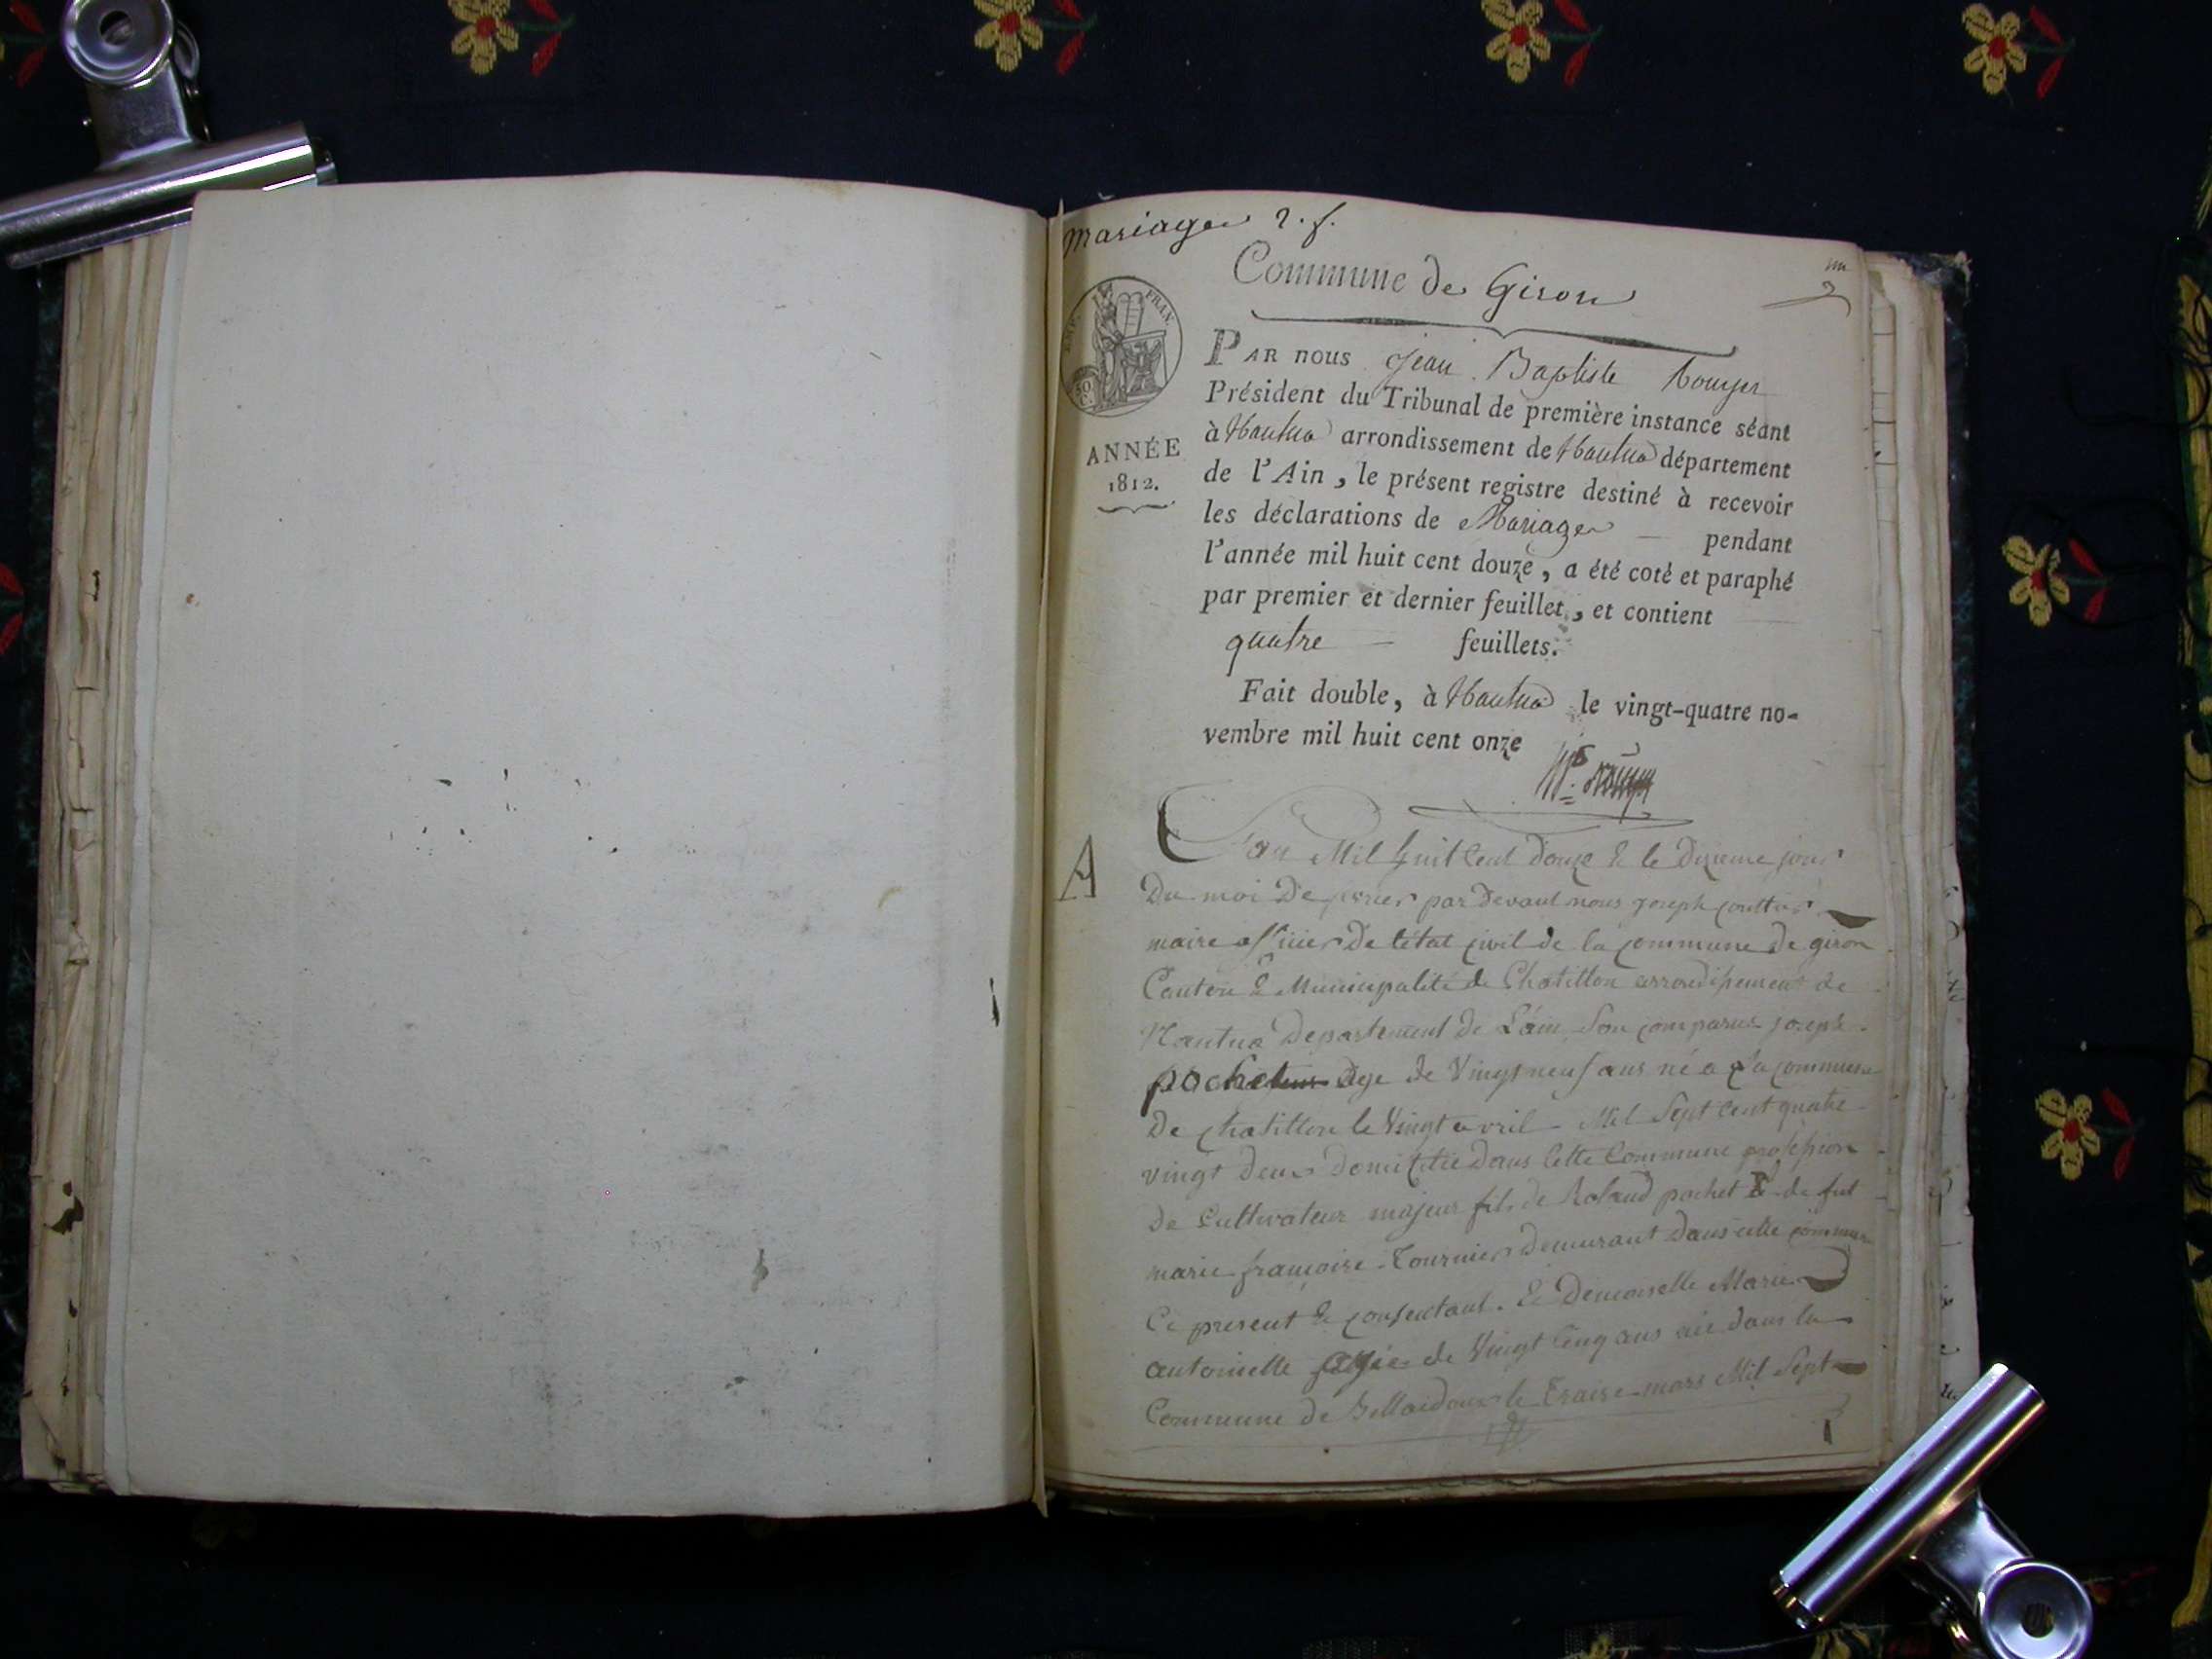 mariages 2. f.
Commune de Giron
EMP. FRAN.
50 C.
ANNÉE
1812.
PAR nous Jean Baptiste Rouyer
Président du Tribunal de première instance séant
à Nantua arrondissement de Nantua département
de l'Ain, le présent registre destiné à recevoir
les déclarations de Mariages — pendant
l'année mil huit cent douze, a été coté et paraphé
par premier et dernier feuillet, et contient
quatre — feuillets.
Fait double, à Nantua le vingt-quatre no-
vembre mil huit cent onze
A
L'an Mil huit Cent douze & le Dixieme jour
Du moi De fevrier par Devant nous joseph
maire officier De l'état civil de la commune de giron
Canton & Municipalité de Chatillon arrondissement de
Nantua Departement de L'ain Son comparus joseph
pochet age de Vingt neuf ans né a La commune
De chatillon le Vingt avril Mil Sept Cent quatre
vingt Deux Domicilié Dans Cette Commune profession
De Cultivateur majeur fils de Roland pochet & de fut
marie françoise Tournier Demurant Dans cette commune
Ce present & consentant. & Demoiselle Marie
antoinette agée de Vingt Cinq ans née dans la
Commune de Bellaidoux le Traise mars Mil Sept